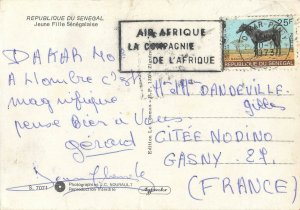 REPUBLIQUE DU SENEGAL
Jeune Fille Sénégalaise
AIR AFRIQUE
LA COMPAGNIE
DE L'AFRIQUE
25F
REPUBLIQUE DU SENEGAL
DAKAR
A l'ombre c'est
magnifique
pense Bien à Vous
gérard
DANDEVILLE
gilles
CITÉE NODINO
GASNY 27.
(FRANCE)
S. 7073
Photographie J.C. NOURAULT
Reproduction Interdite